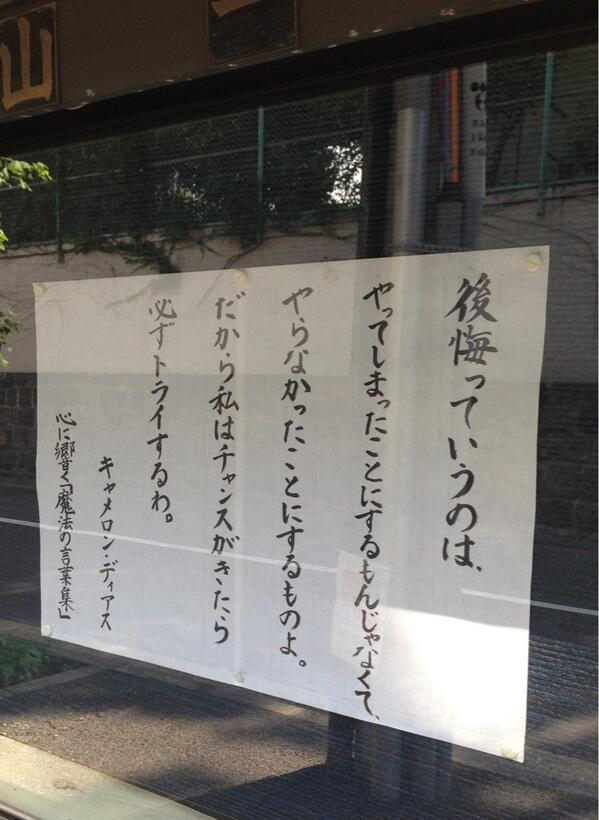 山
後悔っていうのは、
やってしまったことにするもんじゃなくて、
やらなかったことにするものよ。
だから私はチャンスがきたら
必ずトライするわ。
キャメロン・ディアス
心に響く「魔法の言葉集」